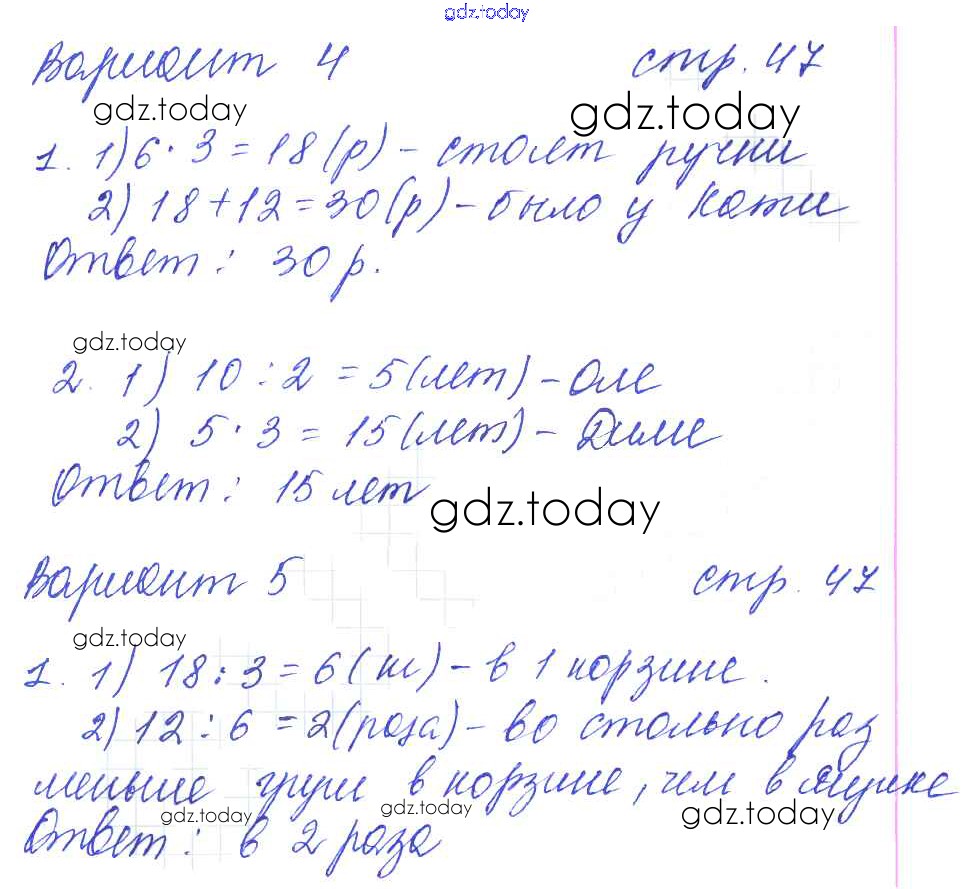 gdz.today
Вариант 4 стр. 47
gdz.today gdz.today
1. 1) 6 · 3 = 18 (р) - стоят ручки
2) 18 + 12 = 30 (р) - было у Кати
Ответ : 30 р.
gdz.today
2. 1) 10 : 2 = 5 (лет) - Оле
2) 5 · 3 = 15 (лет) - Диме
Ответ : 15 лет
gdz.today
Вариант 5 стр. 47
gdz.today
1. 1) 18 : 3 = 6 (кг) - в 1 корзине.
2) 12 : 6 = 2 (раза) - во столько раз
меньше груш в корзине, чем в ящике
gdz.today gdz.today gdz.today
Ответ : в 2 раза